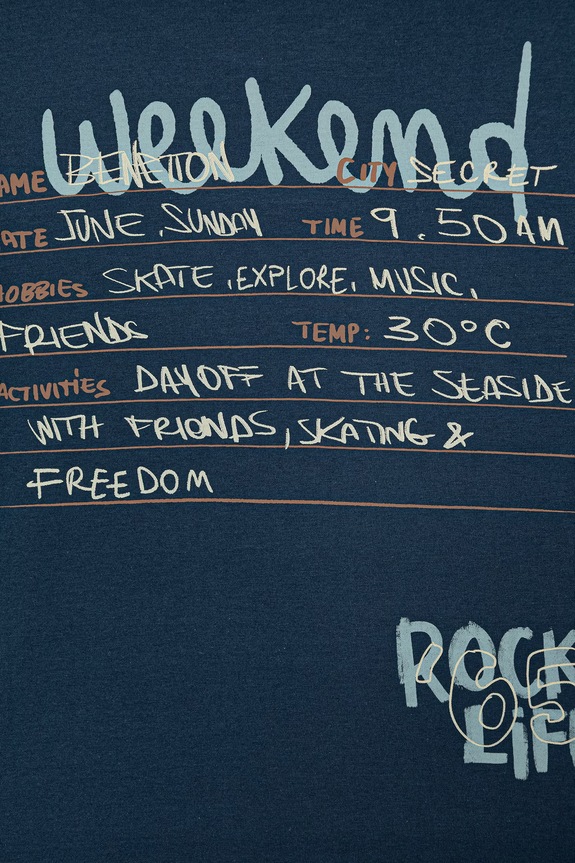 Weekend
AME BENETTON CITY SECRET
ATE JUNE, SUNDAY TIME 9.50 AM
HOBBIES SKATE, EXPLORE, MUSIC,
FRIENDS TEMP: 30°C
ACTIVITIES DAY OFF AT THE SEASIDE
WITH FRIENDS, SKATING &
FREEDOM
ROCK
'65
LiF